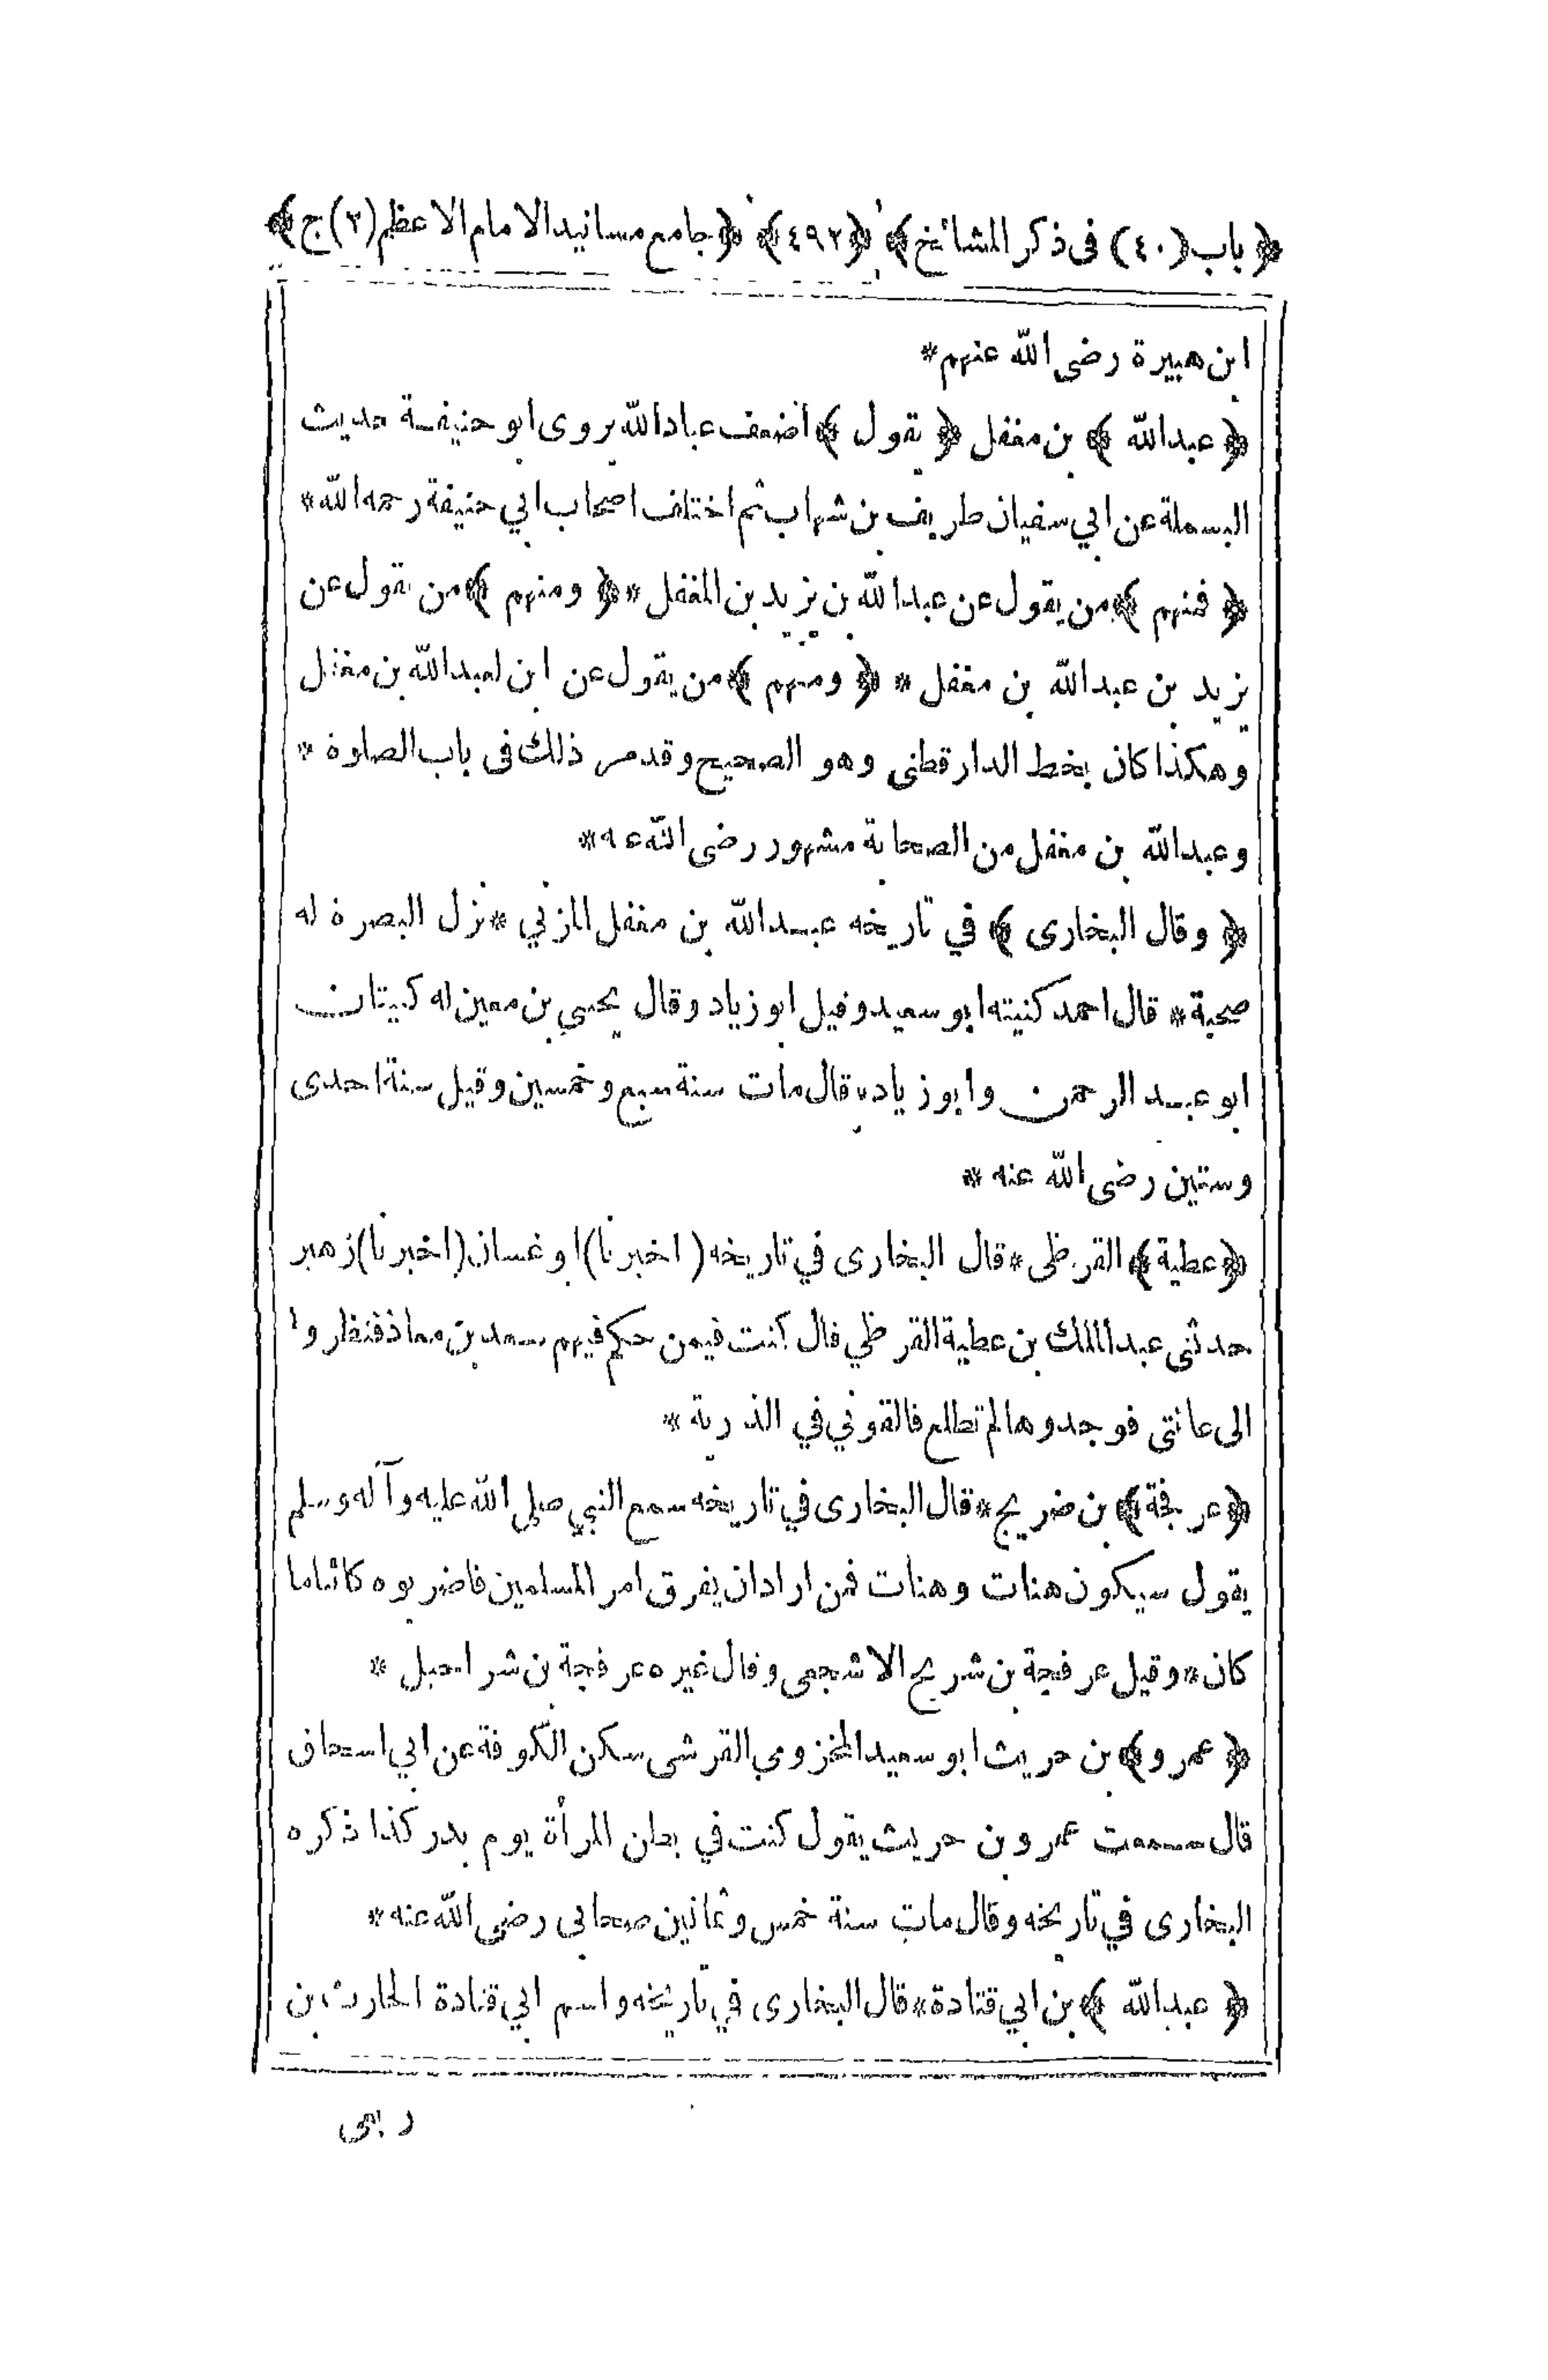 ﴿ باب (٤٠) فى ذكر المشائخ ﴾ ﴿ ٤٩٢ ﴾ ﴿ جامع مسانيد الامام الاعظم (٢) ج ﴾
ابن هبيرة رضى الله عنهم *
﴿ عبدالله ﴾ بن مغفل ﴿ يقول ﴾ اضعف عباد الله يروى ابو حنيفة حديث
البسملة عن ابي سفيان طريف بن شهاب ثم اختلف اصحاب ابي حنيفة رحمه الله *
﴿ فمنهم ﴾ من يقول عن عبدالله بن يزيد بن المغفل * ﴿ ومنهم ﴾ من يقول عن
يزيد بن عبدالله بن مغفل * ﴿ ومنهم ﴾ من يقول عن ابن لعبدالله بن مغفل
وهكذا كان بخط الدارقطنى وهو الصحيح وقد مر ذلك فى باب الصلوة *
وعبدالله بن مغفل من الصحابة مشهور رضى الله عنه *
﴿ وقال البخارى ﴾ في تاريخه عبدالله بن مغفل المزني * نزل البصرة له
صحبة * قال احمد كنيته ابو سعيد وقيل ابو زياد وقال يحيى بن معين له كنيتان
ابو عبد الرحمن وابو زياد * قال مات سنة سبع وخمسين وقيل سنة احدى
وستين رضى الله عنه *
﴿ عطية ﴾ القرظى * قال البخارى في تاريخه (اخبرنا) ابو غسان (اخبرنا) زهير
حدثنى عبدالملك بن عطية القرظي قال كنت فيمن حكم فيهم سعد بن معاذ فنظروا
الى عانتى فوجدوها لم تطلع فالقوني في الذرية *
﴿ عرفجة ﴾ بن ضريح * قال البخارى في تاريخه سمع النبي صلى الله عليه وآله وسلم
يقول سيكون هنات وهنات فمن اراد ان يفرق امر المسلمين فاضربوه كائنا ما
كان * وقيل عرفجة بن شريح الاشجعى وقال غيره عرفجة بن شراحيل *
﴿ عمرو ﴾ بن حريث ابو سعيد المخزومي القرشى سكن الكوفة عن ابي اسحاق
قال سمعت عمرو بن حريث يقول كنت في بطن المرأة يوم بدر كذا ذكره
البخارى في تاريخه وقال مات سنة خمس وثمانين صحابى رضى الله عنه *
﴿ عبدالله ﴾ بن ابي قتادة * قال البخارى في تاريخه واسم ابي قتادة الحارث بن
ربعى